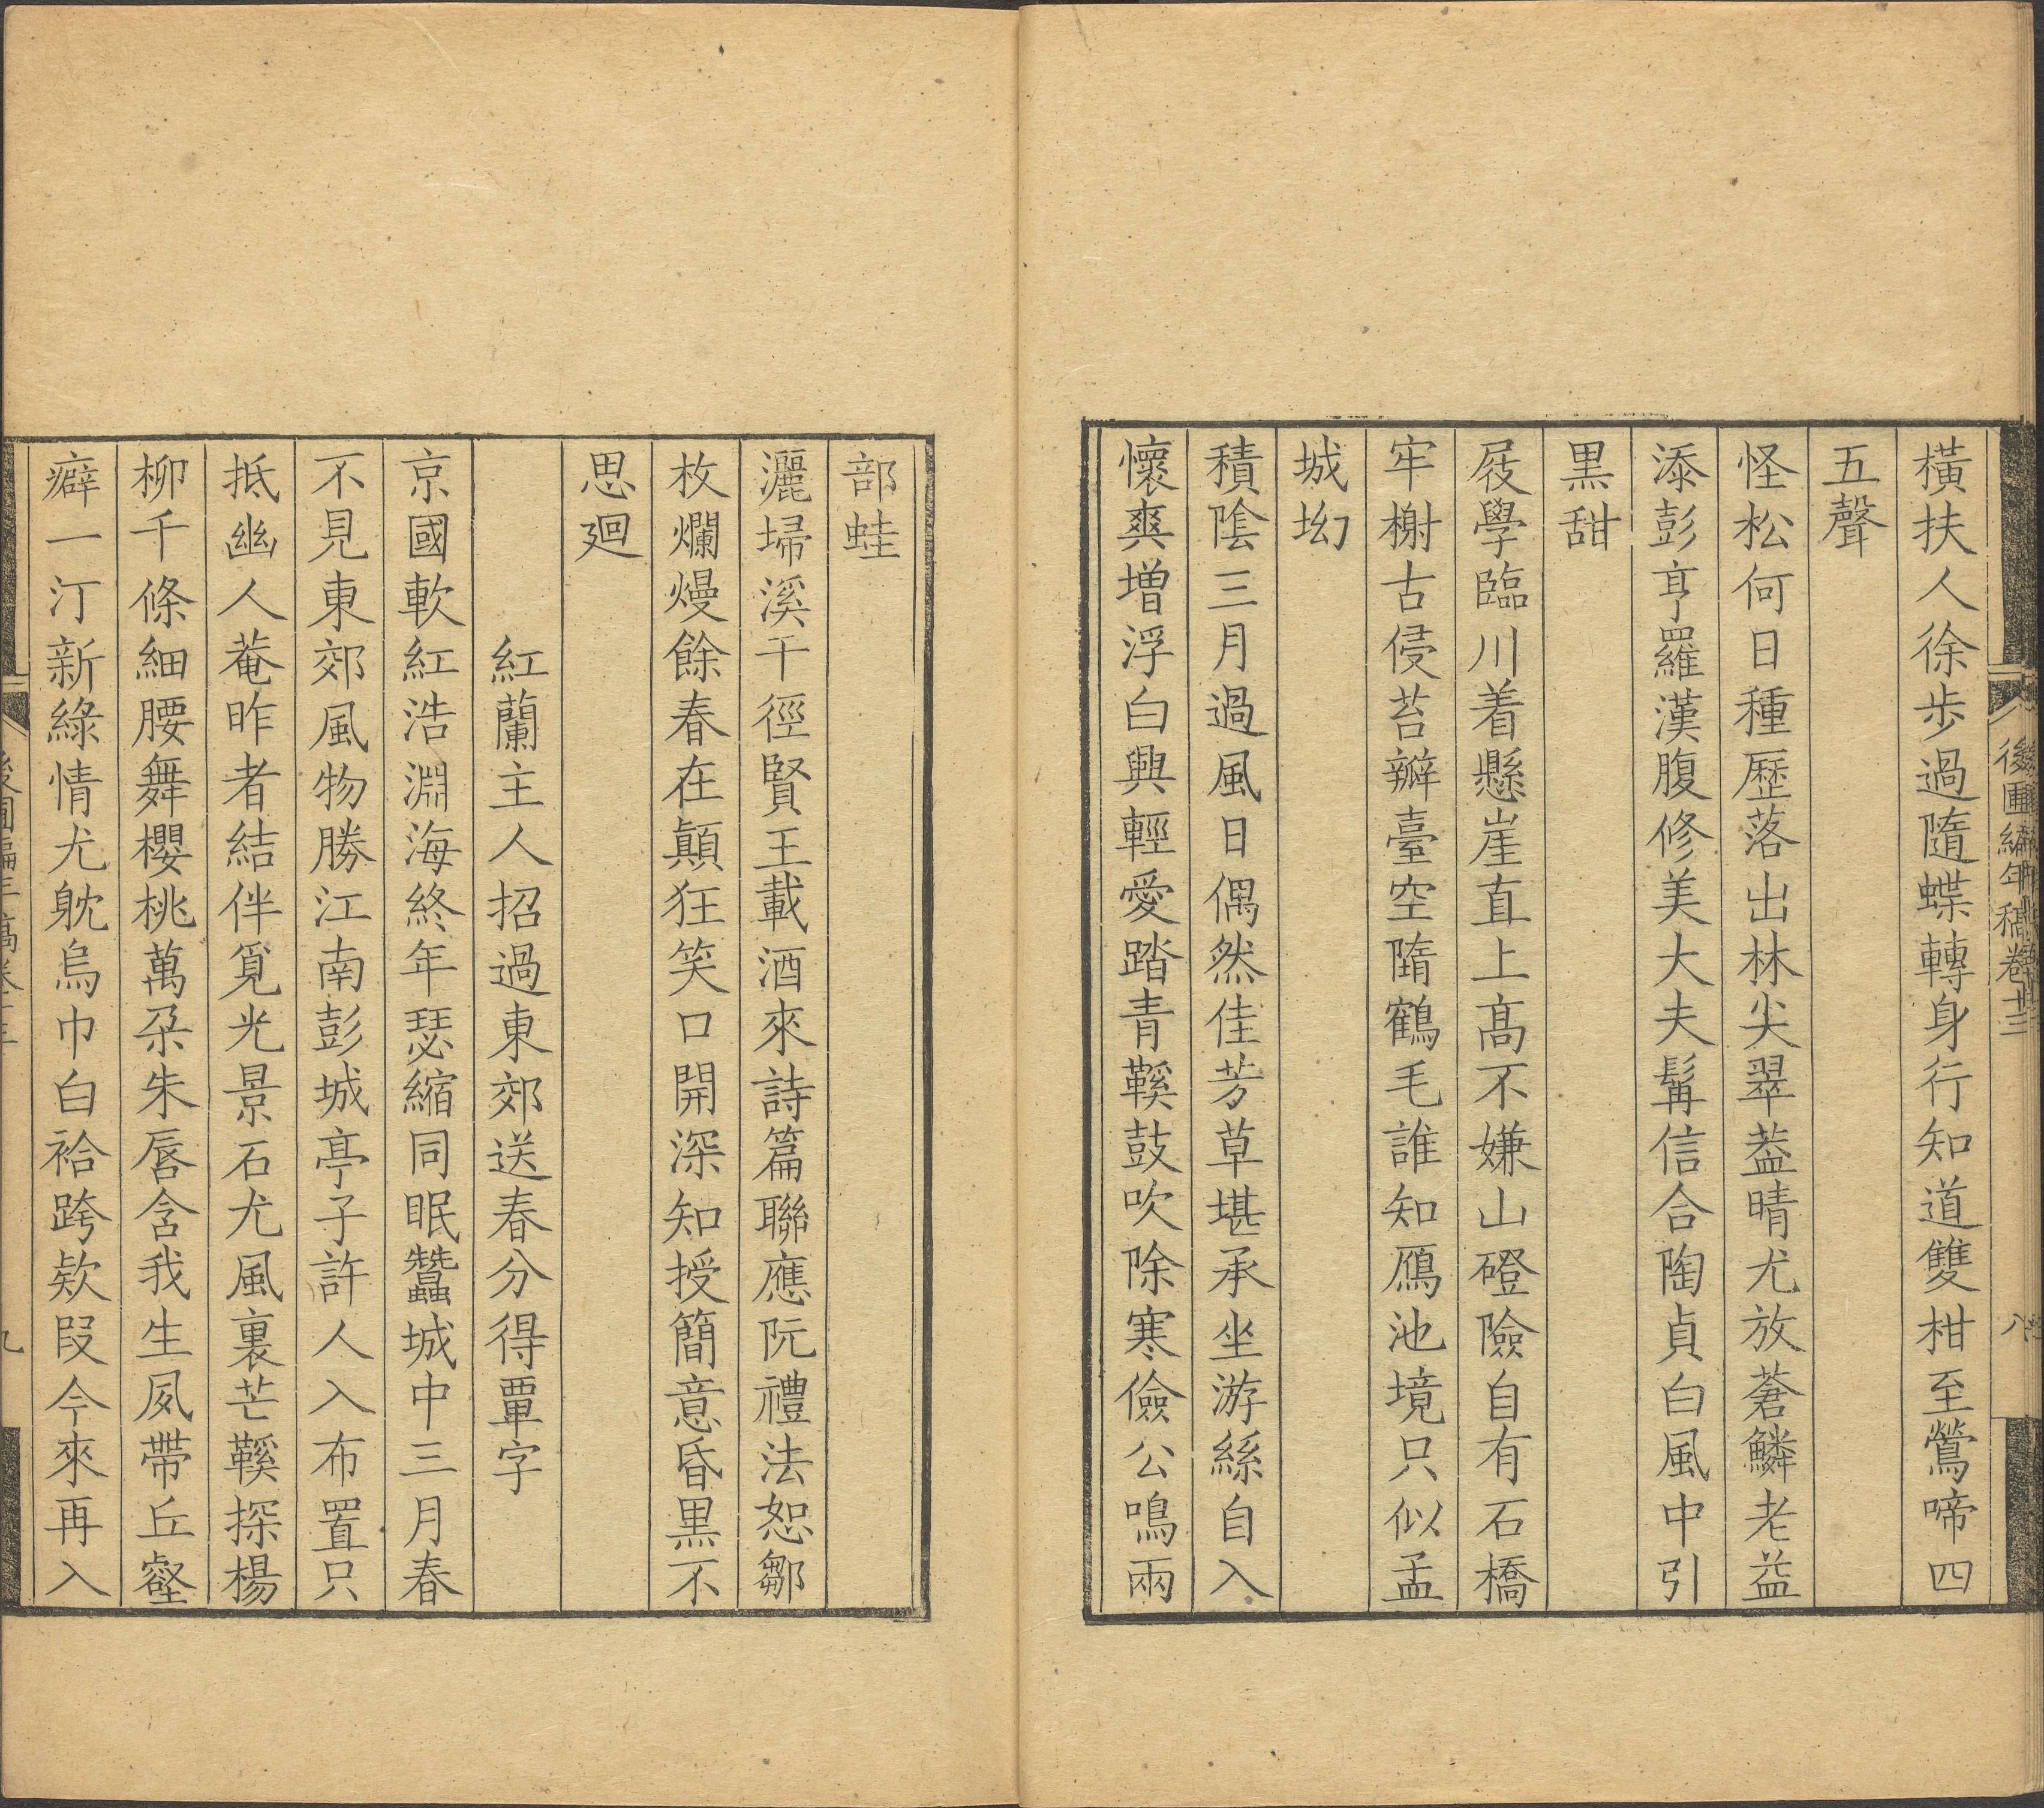 後圃編年稿卷十三
八
橫扶人徐步過隨蝶轉身行知道雙柑至鶯啼四
五聲
怪松何日種歷落出林尖翠葢晴尤放蒼鱗老益
添彭亨羅漢腹修美大夫髯信合陶貞白風中引
黒甜
屐學臨川着懸崖直上髙不嫌山磴險自有石橋
牢榭古侵苔瓣臺空隋鶴毛誰知鴈池境只似孟
城坳
積陰三月過風日偶然佳芳草堪承坐游絲自入
懷爽增浮白興輕愛踏青鞵鼓吹除寒儉公鳴兩
部蛙
灑埽溪干徑賢王載酒來詩篇聯應阮禮法恕鄒
枚爛熳餘春在顛狂笑口開深知授簡意昏黒不
思廻
紅蘭主人招過東郊送春分得覃字
京國軟紅浩淵海終年瑟縮同眠蠶城中三月春
不見東郊風物勝江南彭城亭子許人入布置只
抵幽人菴昨者結伴覓光景石尤風裏芒鞵探楊
柳千條細腰舞櫻桃萬朶朱唇含我生夙帶丘壑
癖一汀新綠情尤躭烏巾白袷跨欵叚今來再入
後圃編年稿卷十三
九